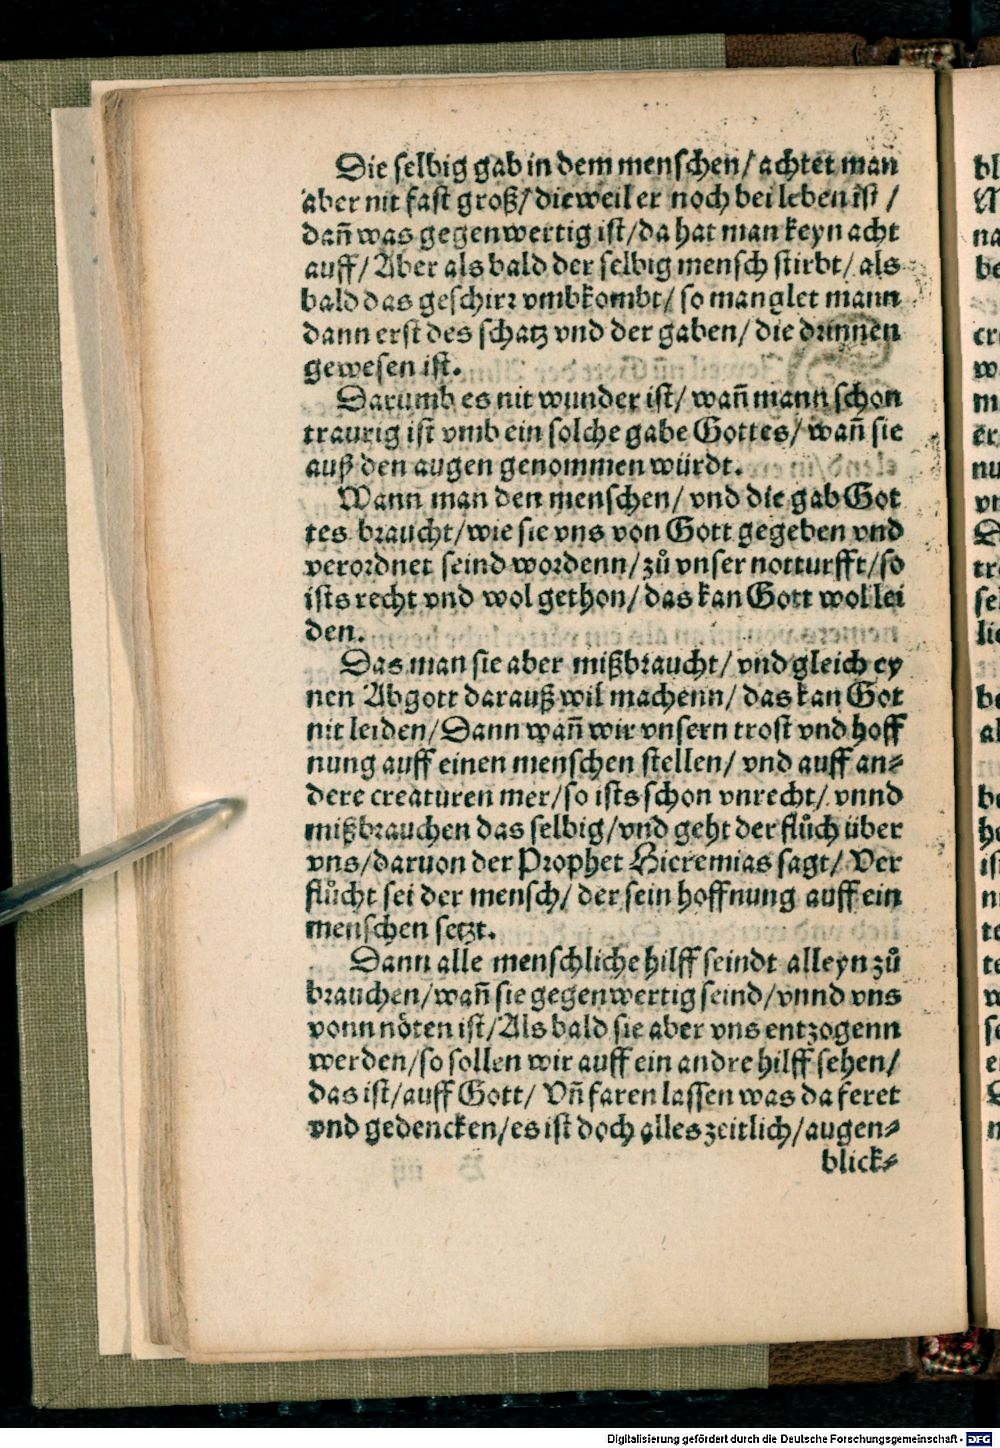 Die selbig gab in dem menschen/ achtet man
aber nit fast groß/ dieweil er noch bei leben ist /
dañ was gegenwertig ist/ da hat man keyn acht
auff/ Aber als bald der selbig mensch stirbt/ als
bald das geschirr vmbkombt/ so manglet mann
dann erst des schatz vnd der gaben/ die drinnen
gewesen ist.
Darumb es nit wunder ist/ wañ mann schon
traurig ist vmb ein solche gabe Gottes/ wañ sie
auß den augen genommen würdt.
Wann man den menschen/ vnd die gab Got
tes braucht/ wie sie vns von Gott gegeben vnd
verordnet seind wordenn/ zů vnser notturfft/ so
ists recht vnd wol gethon/ das kan Gott wol lei
den.
Das man sie aber mißbraucht/ vnd gleich ey
nen Abgott darauß wil machenn/ das kan Got
nit leiden/ Dann wañ wir vnsern trost vnd hoff
nung auff einen menschen stellen/ vnd auff an⸗
dere creaturen mer/ so ists schon vnrecht/ vnnd
mißbrauchen das selbig/ vnd geht der flůch über
vns/ daruon der Prophet Hieremias sagt/ Ver
flůcht sei der mensch/ der sein hoffnung auff ein
menschen setzt.
Dann alle menschliche hilff seindt alleyn zů
brauchen/ wañ sie gegenwertig seind/ vnnd vns
vonn nöten ist/ Als bald sie aber vns entzogenn
werden/ so sollen wir auff ein andre hilff sehen/
das ist/ auff Gott/ Vñ faren lassen was da feret
vnd gedencken/ es ist doch alles zeitlich/ augen⸗
blick⸗
Digitalisierung gefördert durch die Deutsche Forschungsgemeinschaft - DFG